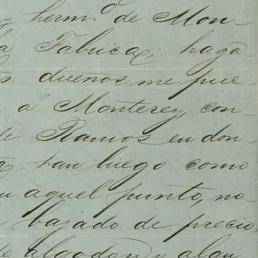 y hermo de Mon-
la Fabrica; haga
s dueños me pue-
a Monterey con-
e Ramos en don-
a, tan luego como
n aquel punto, no
bajado de precio,
de algodon y algu